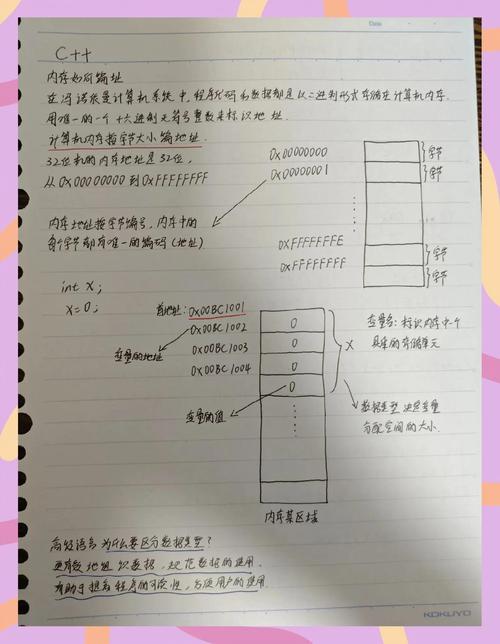 Date
C++
内存如何编址
在冯诺依曼计算机系统中,程序代码和数据都是以二进制形式存储在计算机内存.
用唯一的一个十六进制无符号整数来标识地址.
计算机内存按字节大小编地址.
32位机的内存地址是32位,
从0x00000000到0xFFFFFFFF
0x00000000
字节
0x00000001
字节
内存地址按字节编号,内存中的
每个字节都有唯一的编码(地址)
0xFFFFFFFE
字节
0xFFFFFFFF
字节
int x;
x=0;
首地址: 0x00BC1001
0
0x00BC1002
0
0x00BC1003
0
0x00BC1004
0
X
变量名: 标识内存中一个
具体的存储单元
变量的地址
变量的值
数据类型 决定变量
分配空间的大小.
内存某区域
高级语言为什么要区分数据类型?
更有效地组织数据,规范数据的使用.
有助于提高程序的可读性,方便用户的使用.
KOKUYO